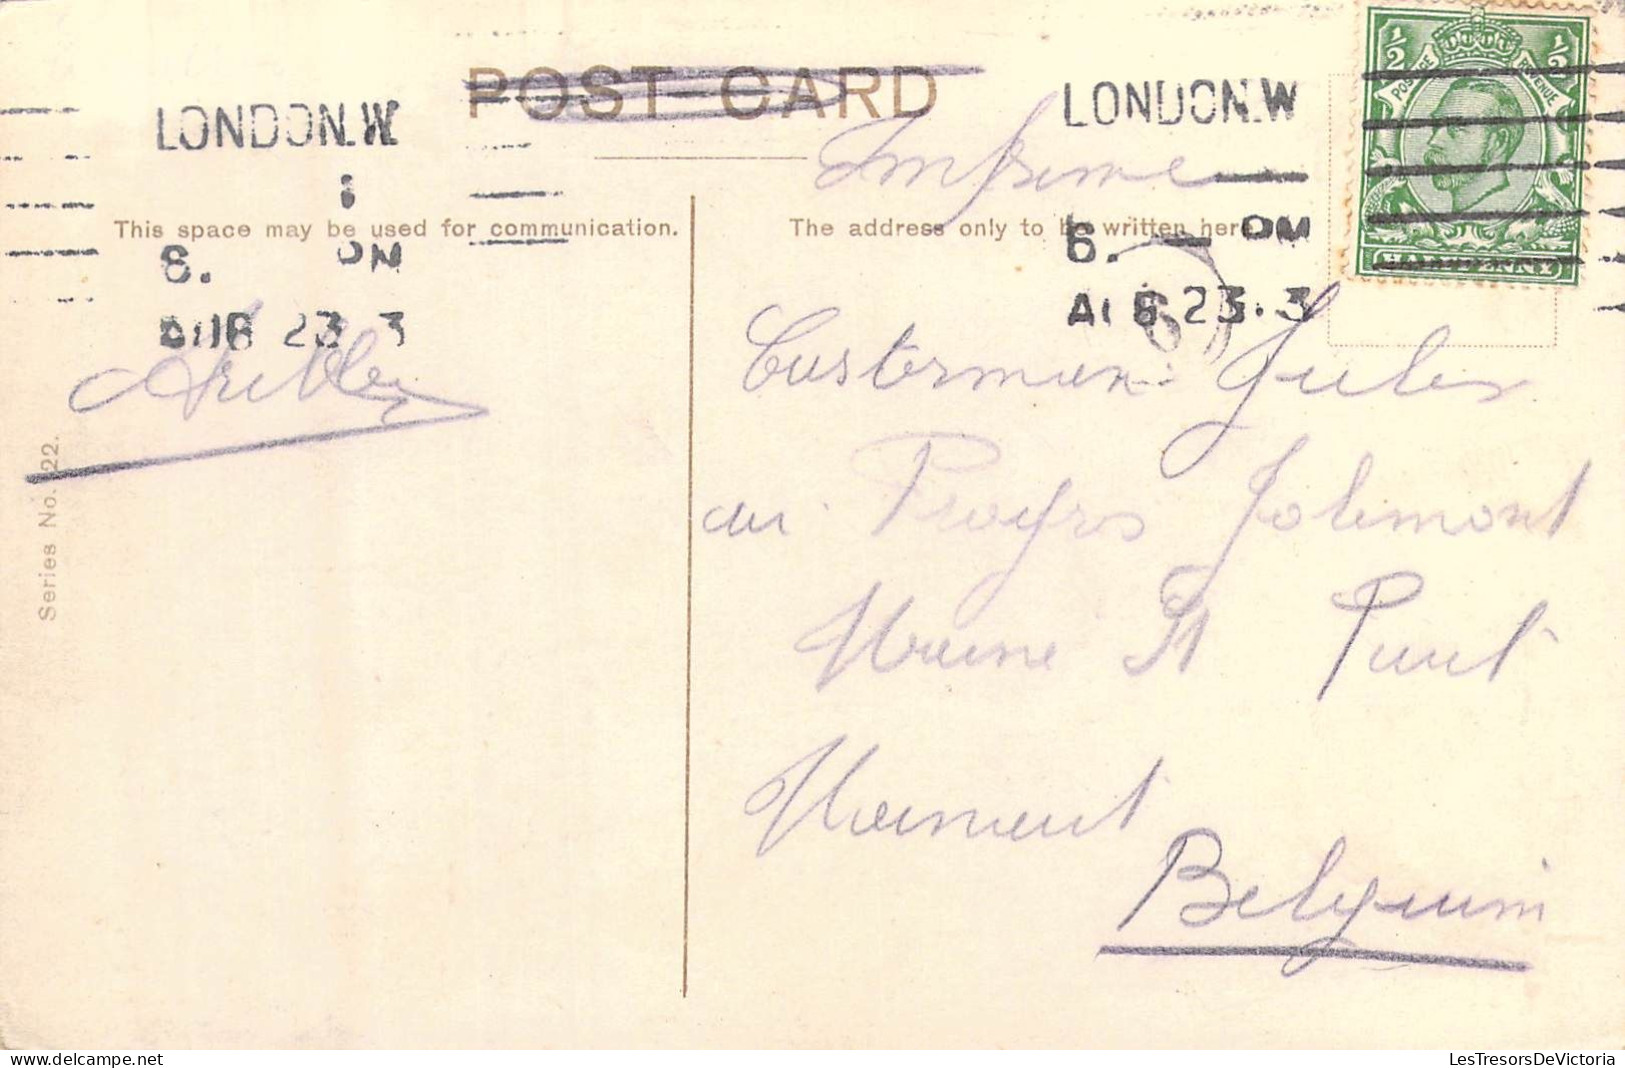 POST CARD
LONDON.W
6. PM
AUG 23 3
LONDON.W
6. PM
AUG 23.3
1/2 1/2
POSTAGE REVENUE
HALFPENNY
Imprime
This space may be used for communication.
The address only to be written here
Custerman Jules
au Progrs Jolimont
Haine St Paul
Hainaut
Belgium
Series No. 22.
LesTresorsDeVictoria